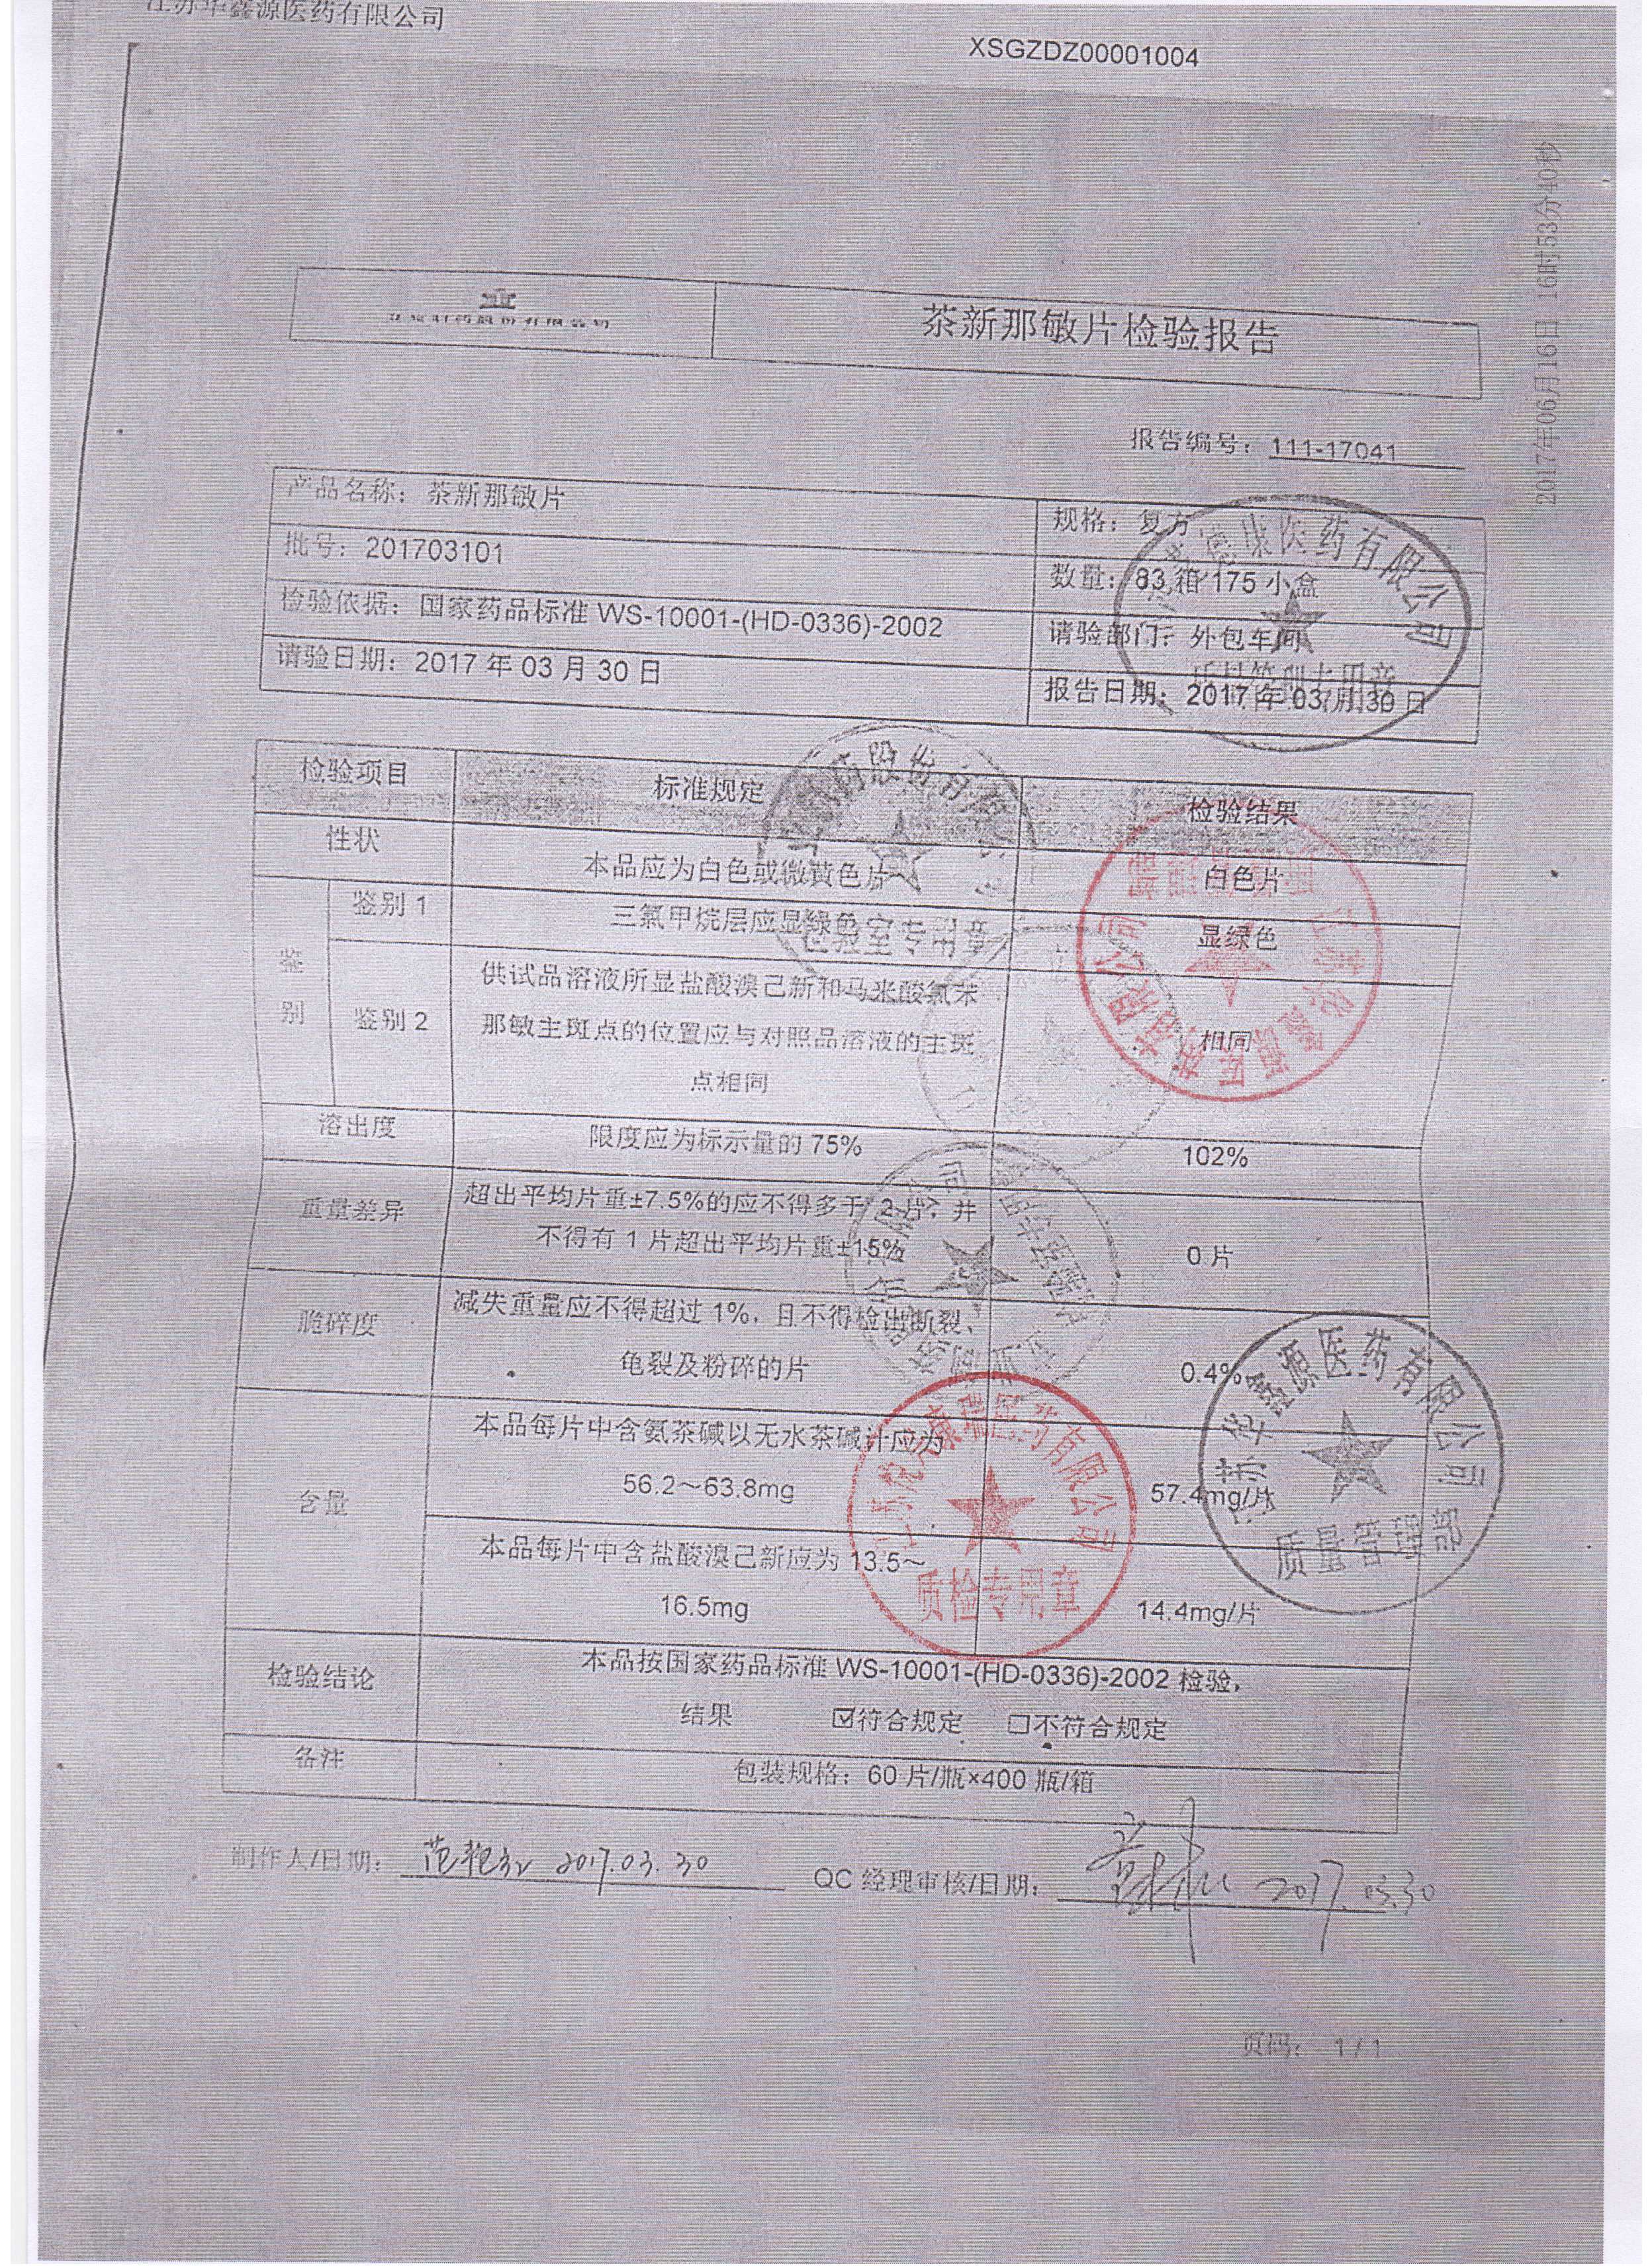 江苏华鑫源医药有限公司
XSGZDZ00001004
2017年06月16日 16时53分40秒
茶新那敏片检验报告
报告编号：111-17041
产品名称：茶新那敏片 规格：复方
批号：201703101 数量：83箱175小盒
检验依据：国家药品标准 WS-10001-(HD-0336)-2002 请验部门：外包车间
请验日期：2017年03月30日 报告日期：2017年03月30日
检验项目 标准规定 检验结果
性状 本品应为白色或微黄色片 白色片
鉴别 鉴别1 三氯甲烷层应显绿色 显绿色
鉴别2 供试品溶液所显盐酸溴己新和马来酸氯苯
那敏主斑点的位置应与对照品溶液的主斑 相同
点相同
溶出度 限度应为标示量的75% 102%
重量差异 超出平均片重±7.5%的应不得多于2片，并
不得有1片超出平均片重±15% 0片
脆碎度 减失重量应不得超过1%，且不得检出断裂、
龟裂及粉碎的片 0.4%
含量 本品每片中含氨茶碱以无水茶碱计应为
56.2～63.8mg 57.4mg/片
本品每片中含盐酸溴己新应为13.5～
16.5mg 14.4mg/片
检验结论 本品按国家药品标准 WS-10001-(HD-0336)-2002 检验，
结果 ☑符合规定 ☐不符合规定
备注 包装规格：60片/瓶×400瓶/箱
制作人/日期： 2017.03.30 QC经理审核/日期： 2017.03.30
页码： 1/1
德康医药有限公司
质量管理专用章
检验室专用章
江苏华鑫源医药有限公司
康瑞医药有限公司
质检专用章
江苏华鑫源医药有限公司
质量管理部